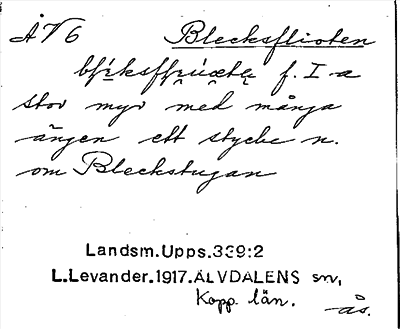 ÅV6 Blecksflioten
f. I a
stor myr med många
ängen ett stycke n.
om Bleckstugan
Landsm.Upps.339:2
L.Levander.1917.ÄLVDALENS sn,
Kopp. län.
ås.